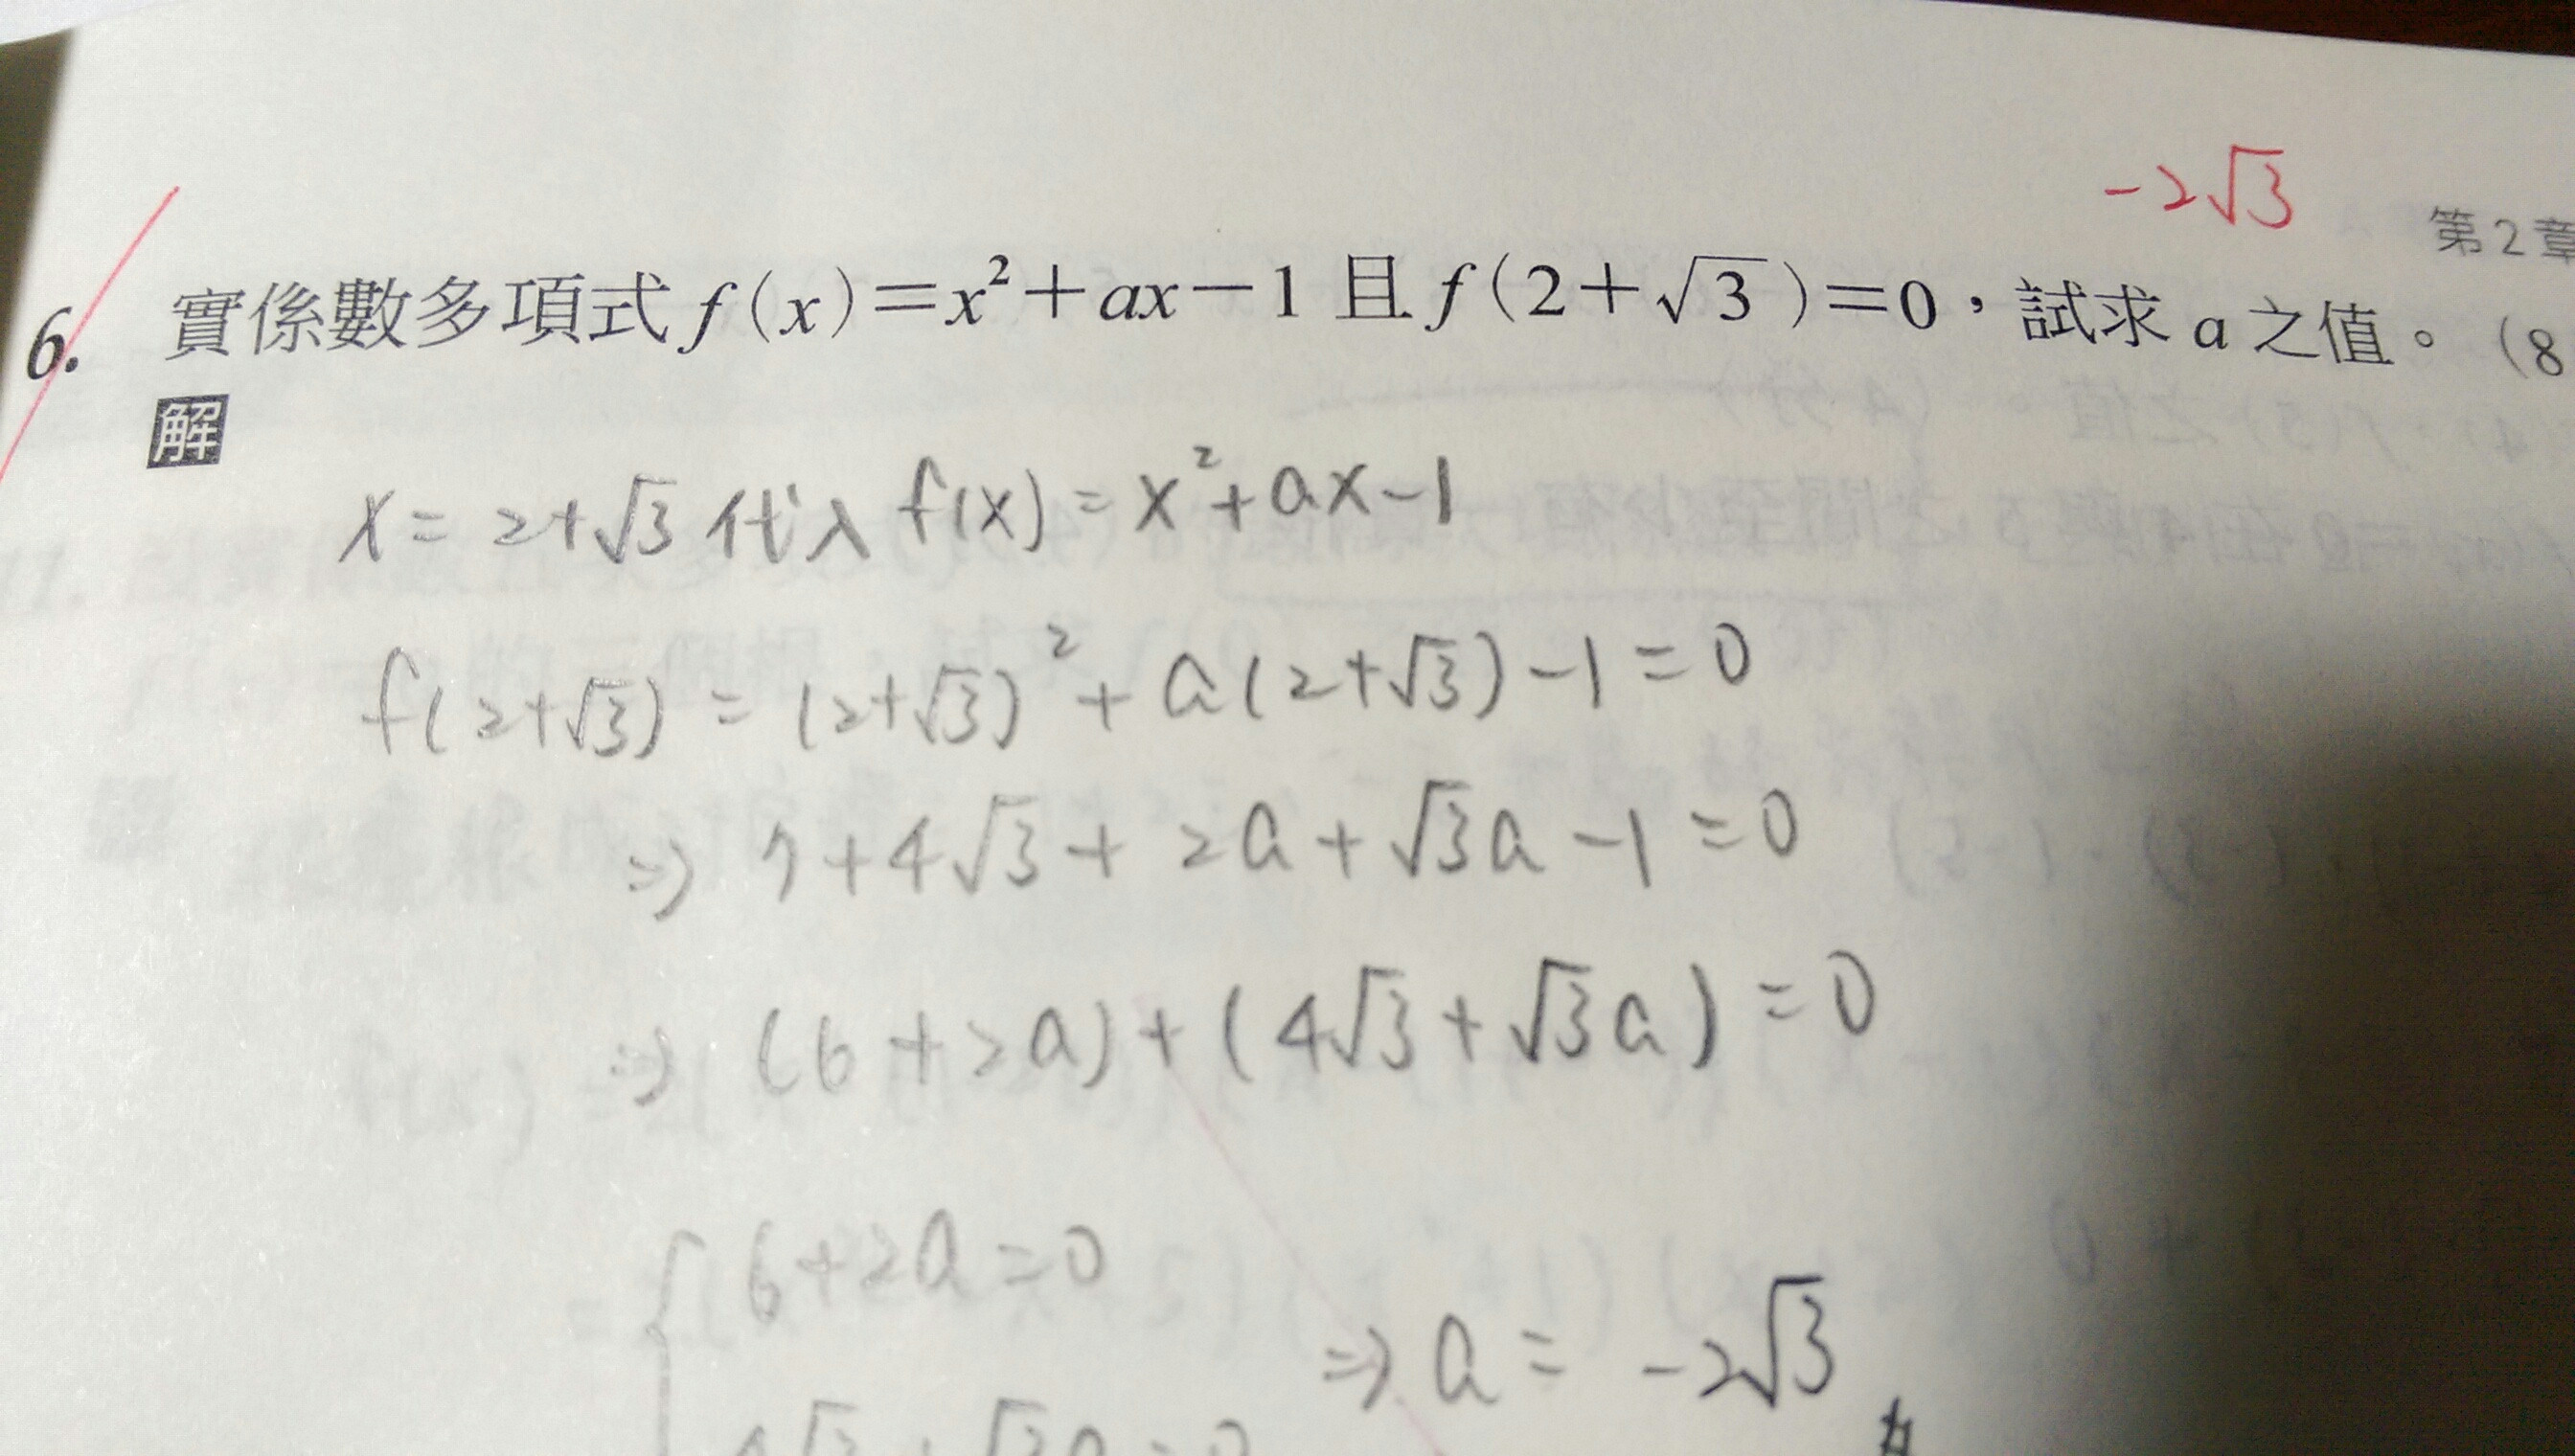 -2√3
第2章
6. 實係數多項式 f(x)=x²+ax-1 且 f(2+√3)=0，試求 a 之值。(8
解
x = 2+√3 代入 f(x) = x²+ax-1
f(2+√3) = (2+√3)² + a(2+√3) -1 = 0
⇒ 7+4√3+2a+√3a-1=0
⇒ (6+2a)+(4√3+√3a)=0
{ 6+2a=0
⇒ a = -2√3
4√3+√3a=0